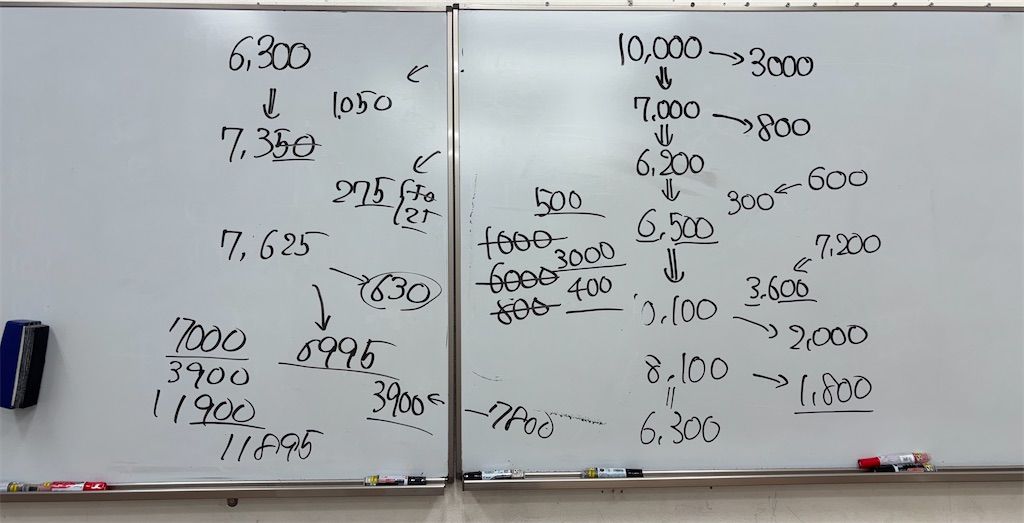 6,300
1,050
7,350
275 {50
25
7,625
630
7000
6995
3900
3900
11900
11895
10,000 → 3000
7,000 → 800
6,200
300 ← 600
500
6,500
1000
3000
7,200
6000
400
3,600
800
0,100 → 2,000
8,100 → 1,800
7800
6,300